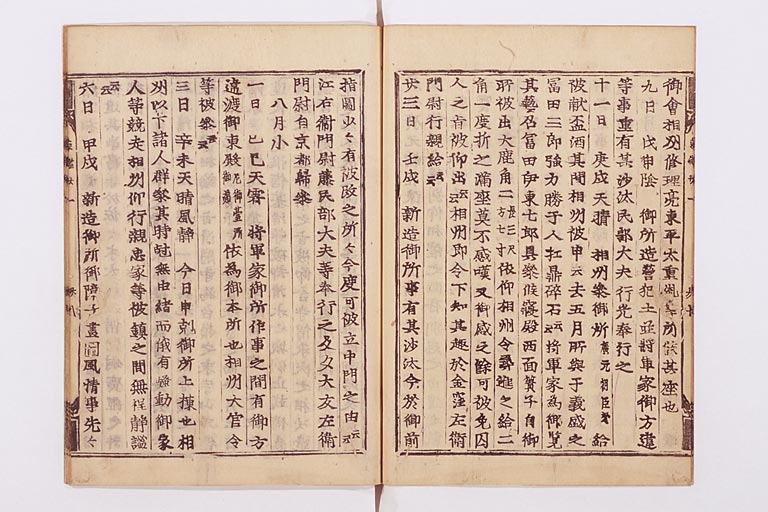 御會相州修理亮東平太重胤等所候其座也
九日 戊申陰 御所造營犯土並將軍家御方違
等事重有其沙汰民部大夫行光奉行之
十一日 庚戌天晴 相州參御所廣元朝臣 給
被獻盃酒其間相州被申云去五月所與于義盛之
冨田三郎強力勝于人扛鼎碎石云云將軍家為御覽
其藝召冨田伊東七郎具參候寢殿西面簀子自御
所被出大鹿角二長三尺七寸依仰相州令尋進之給二
角一度折之滿座莫不感嘆又御感之餘可被免囚
人之旨被仰出云云相州即令下知其趣於金窪左衛
門尉行親給云云
廿三日 壬戌 新造御所事有其沙汰今於御前
指圖少々有被改之所々今度可被立中門之由云云
江右衛門尉藤民部大夫等奉行之及夕大友左衛
門尉自京都歸參
八月小
一日 己巳天霽 將軍家御所作事之間有御方
違渡御東殿尼御臺所御所依為御本所也相州大官令
等被參云云
三日 辛未天晴風靜 今日申剋御所上棟也相
州以下諸人群參其時尅無由緒而俄有發動御家
人等競走相州仰行親忠家等被鎮之間無程靜謐
云云
六日 甲戌 新造御所御障子畫圖風情事先々